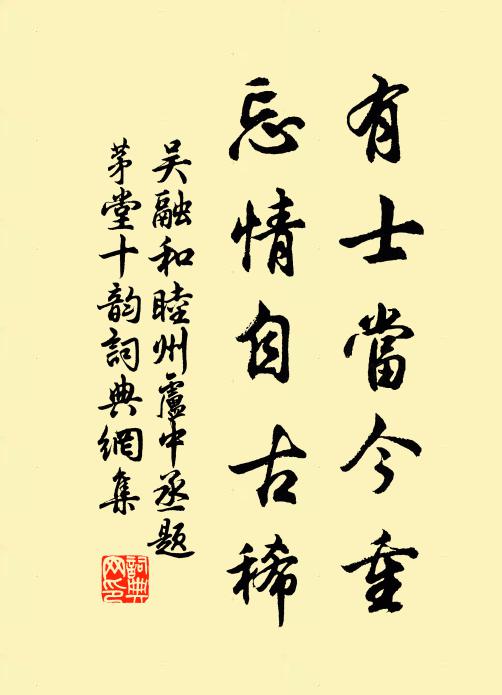 有士當今重
忘情自古稀
吴融和睦州盧中丞題
茅堂十韵詞典網集
詞典網印